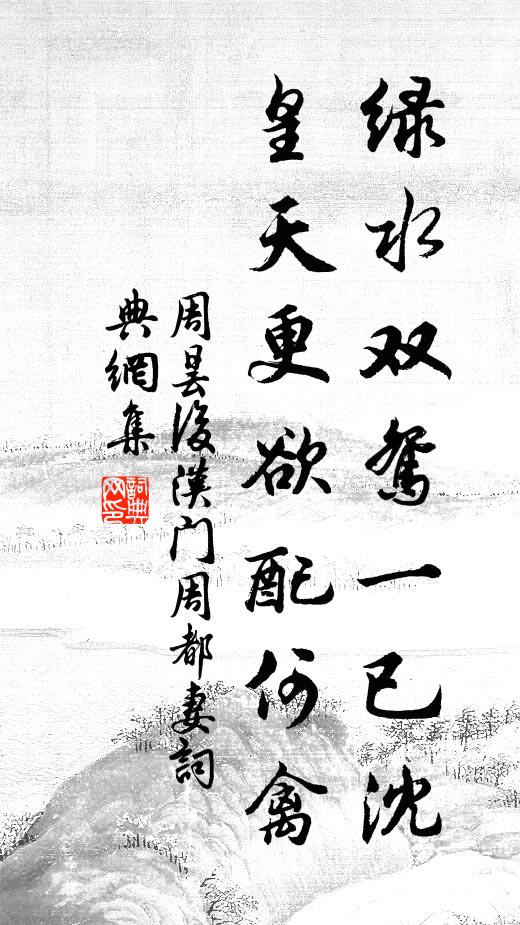 绿水双鸳一已沈
皇天更欲配何禽
周昙後漢门周都妻詞
典網集
詞典
网印